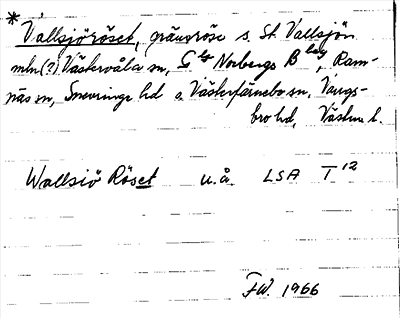 * Vallsjöröset, gränsröse s. St. Vallsjön
mln(?) Västervåla sn, Gla Norbergs Blag, Ram-
näs sn, Snevringe hd o. Västerfärnebo sn, Vangs-
bro hd, Västm l.
Wallsiö Röset u.å. LSA T 12
F.W. 1966